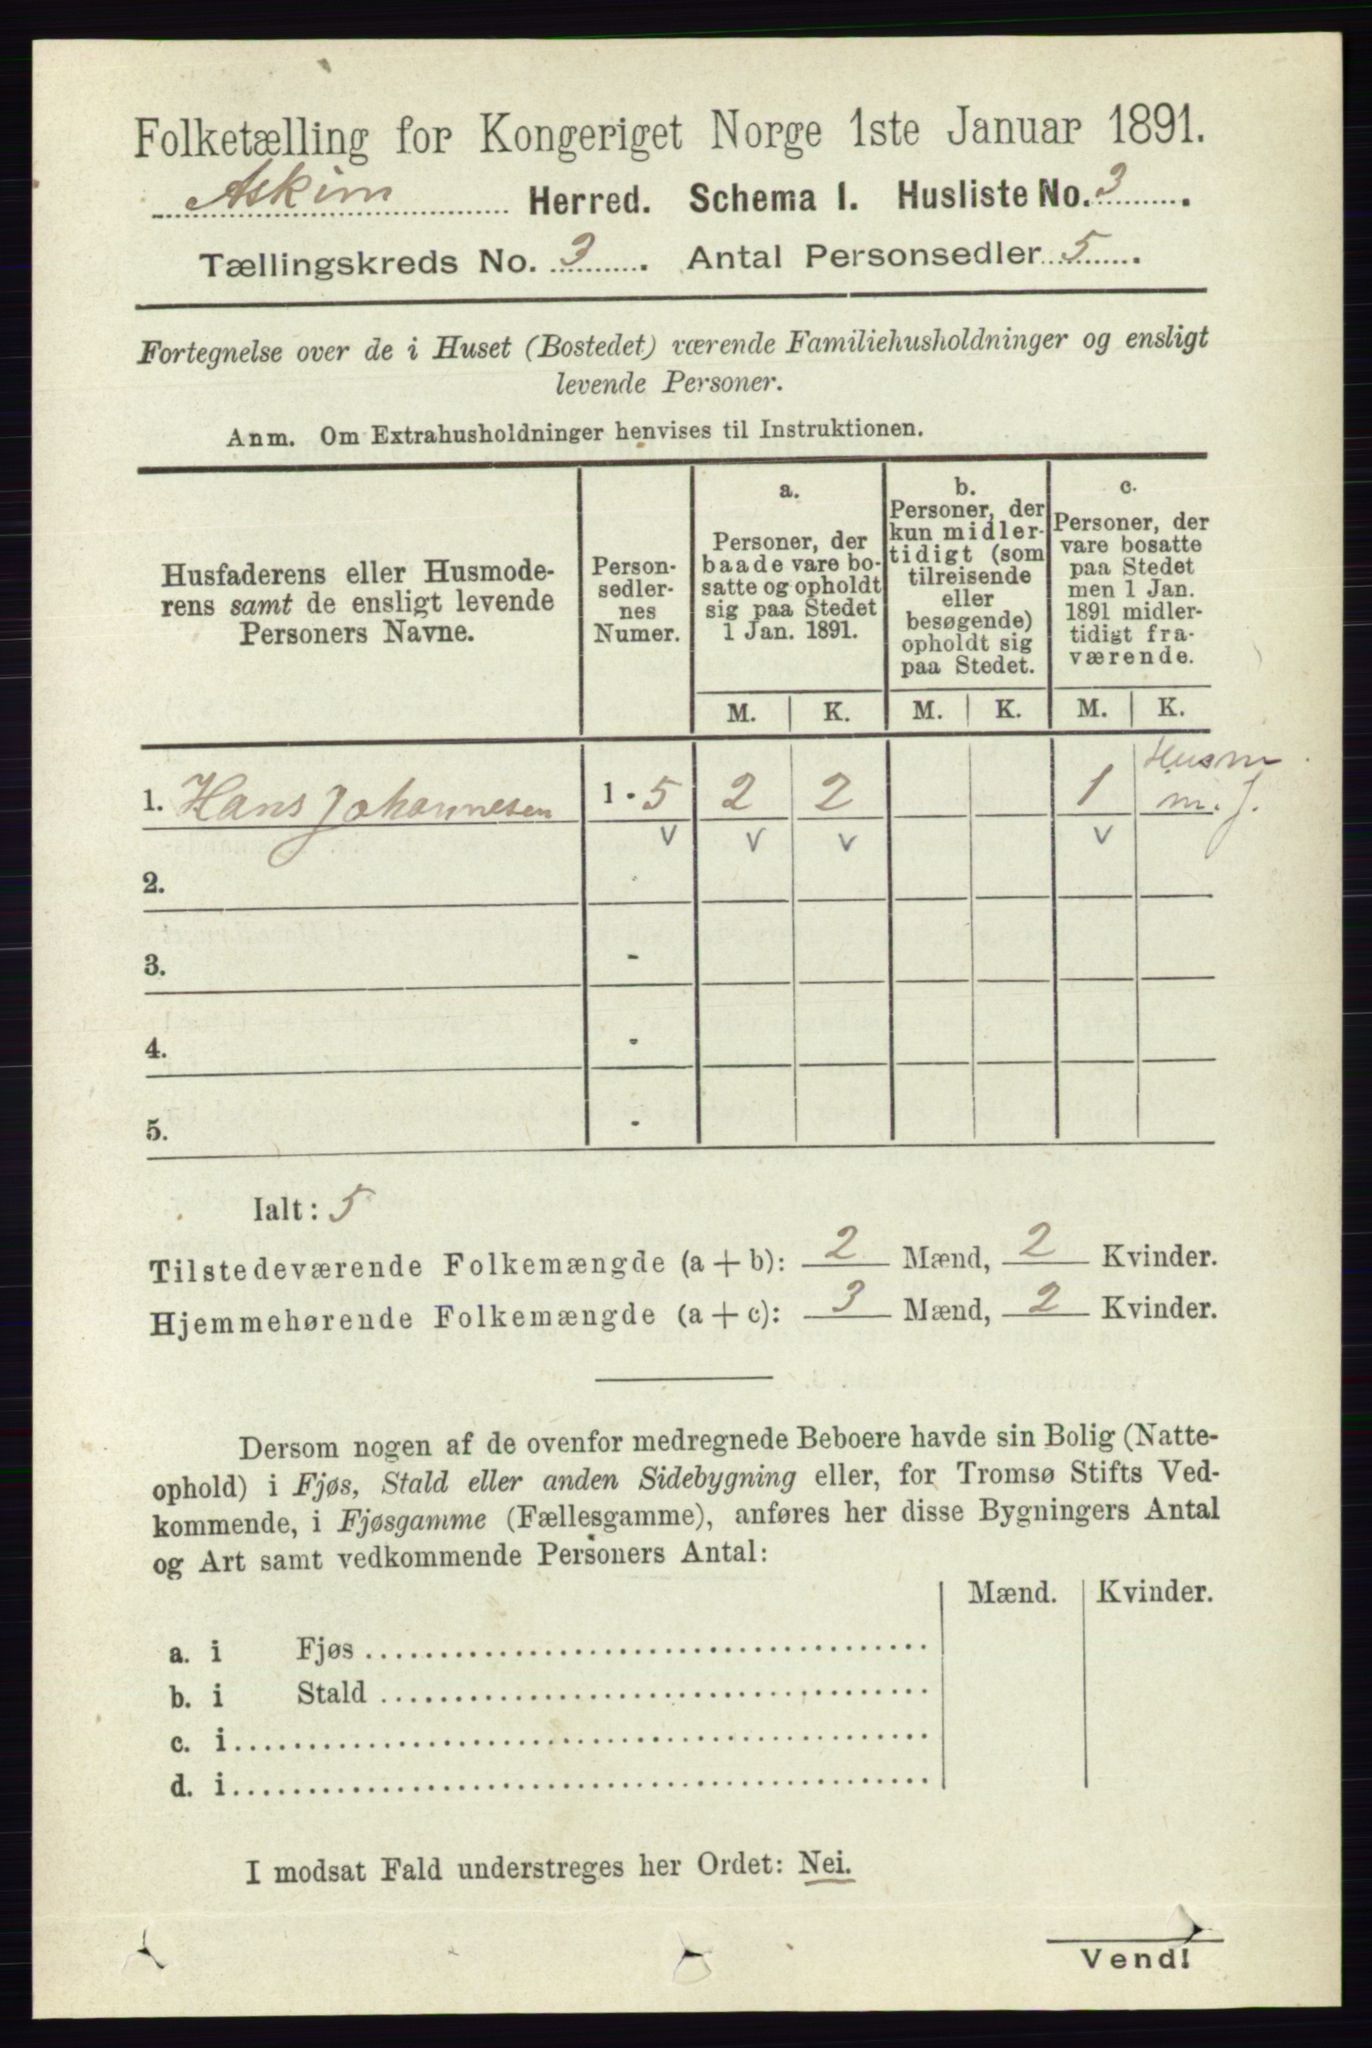 Folketælling for Kongeriget Norge 1ste Januar 1891.
Askim Herred. Schema I. Husliste No. 3.
Tællingskreds No. 3. Antal Personsedler 5.
Fortegnelse over de i Huset (Bostedet) værende Familiehusholdninger og ensligt
levende Personer.
Anm. Om Extrahusholdninger henvises til Instruktionen.
Husfaderens eller Husmode-
rens samt de ensligt levende
Personers Navne.
Person-
sedler-
nes
Numer.
a.
Personer, der
baade vare bo-
satte og opholdt
sig paa Stedet
1 Jan. 1891.
b.
Personer, der
kun midler-
tidigt (som
tilreisende
eller
besøgende)
opholdt sig
paa Stedet.
c.
Personer, der
vare bosatte
paa Stedet
men 1 Jan.
1891 midler-
tidigt fra-
værende.
M. K. M. K. M. K.
1. Hans Johannesen 1 - 5 2 2 1 Husm
m. J.
v v v v
2. -
3. -
4. -
5. -
Ialt: 5
Tilstedeværende Folkemængde (a + b): 2 Mænd, 2 Kvinder.
Hjemmehørende Folkemængde (a + c): 3 Mænd, 2 Kvinder.
Dersom nogen af de ovenfor medregnede Beboere havde sin Bolig (Natte-
ophold) i Fjøs, Stald eller anden Sidebygning eller, for Tromsø Stifts Ved-
kommende, i Fjøsgamme (Fællesgamme), anføres her disse Bygningers Antal
og Art samt vedkommende Personers Antal:
Mænd. Kvinder.
a. i Fjøs
b. i Stald
c. i
d. i
I modsat Fald understreges her Ordet: Nei.
Vend!